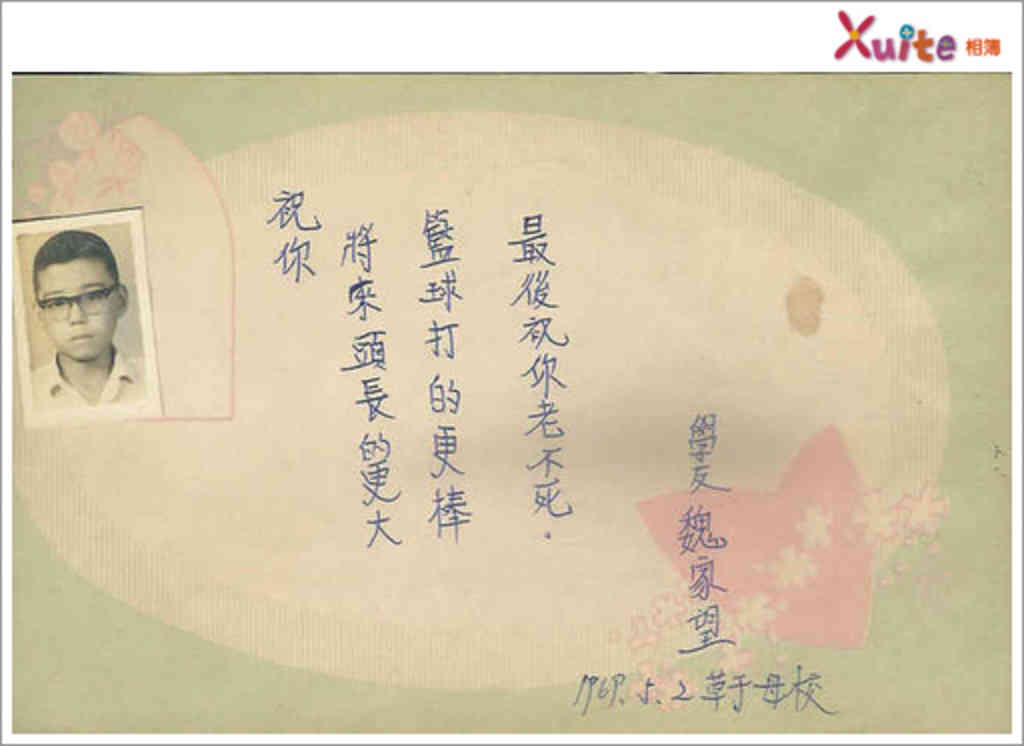 Xuite 相簿
祝你
將來頭長的更大
籃球打的更棒
最後祝你老不死.
學友 魏家望
1969. 5. 2 草于母校